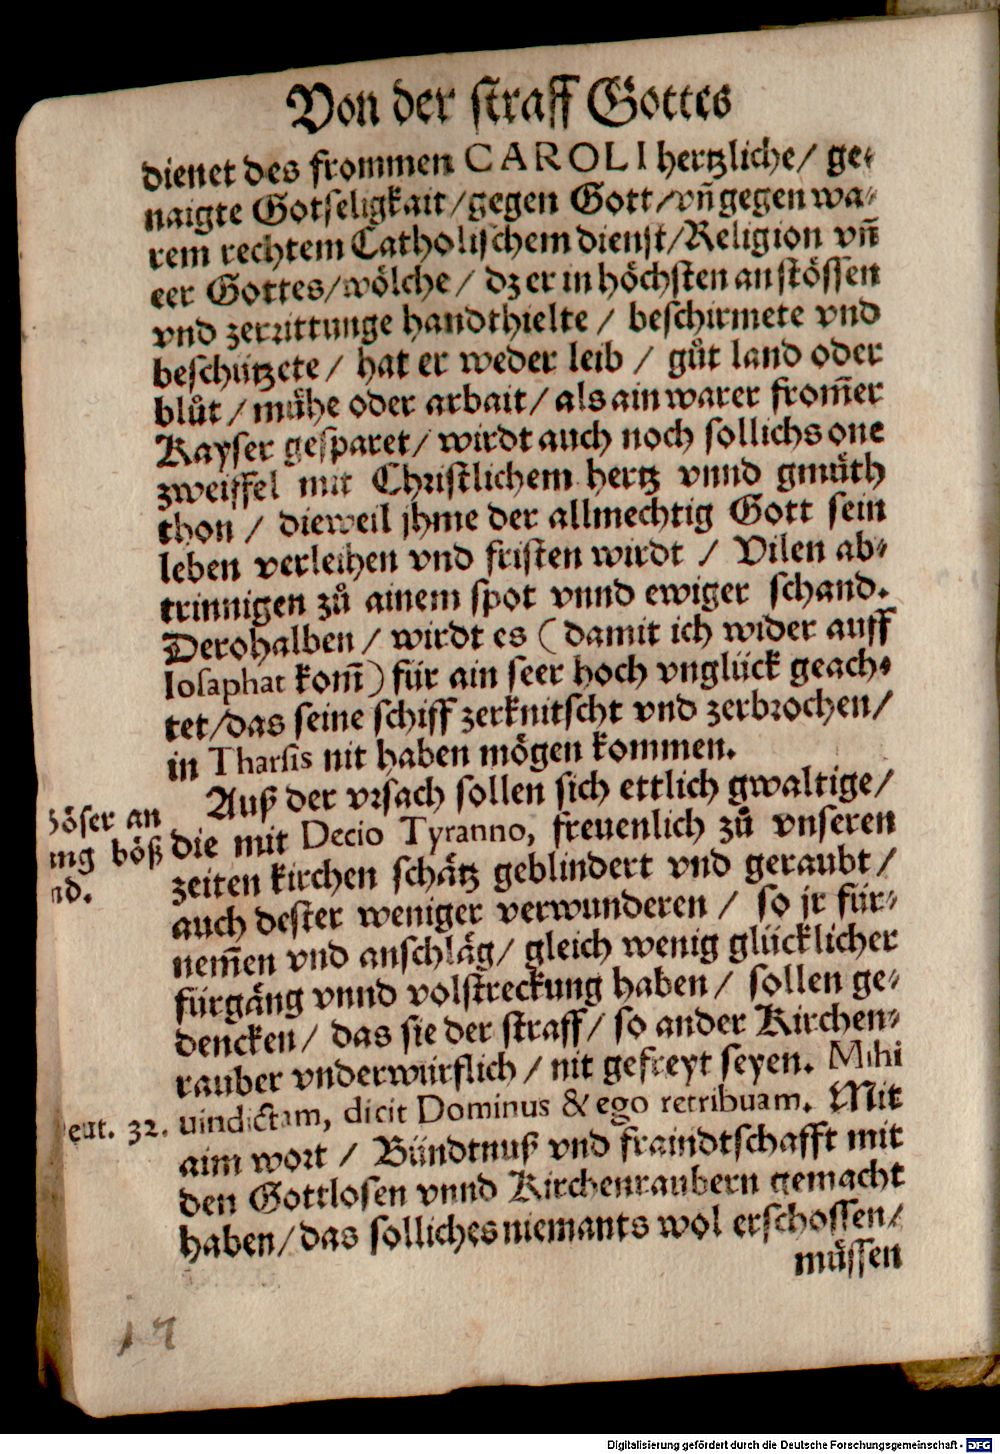 Von der straff Gottes
dienet des frommen CAROLI hertzliche/ ge-
naigte Gotseligkait/gegen Gott/vñ gegen wa-
rem rechtem Catholischem dienst/Religion vñ
eer Gottes/wölche/ dz er in höchsten anstössen
vnd zerrittunge handthielte/ beschirmete vnd
beschützete/ hat er weder leib/ gůt land oder
blůt/mühe oder arbait/als ain warer from̃er
Kayser gesparet/ wirdt auch noch sollichs one
zweiffel mit Christlichem hertz vnnd gmüth
thon/ dieweil jhme der allmechtig Gott sein
leben verleihen vnd fristen wirdt/ Vilen ab-
trinnigen zů ainem spot vnnd ewiger schand.
Derohalben/ wirdt es (damit ich wider auff
Iosaphat kom̃) für ain seer hoch vnglück geach-
tet/das seine schiff zerknitscht vnd zerbrochen/
in Tharsis nit haben mögen kommen.
Auß der vrsach sollen sich ettlich gwaltige/
die mit Decio Tyranno, freuenlich zů vnseren
zeiten kirchen schätz geblindert vnd geraubt/
auch dester weniger verwunderen/ so jr für-
nem̃en vnd anschläg/ gleich wenig glücklicher
fürgäng vnnd volstreckung haben/ sollen ge-
dencken/ das sie der straff/ so ander Kirchen-
rauber vnderwürflich/ nit gefreyt seyen. Mihi
uindictam, dicit Dominus & ego retribuam. Mit
aim wort/ Bündtnuß vnd fraindtschafft mit
den Gottlosen vnnd Kirchenraubern gemacht
haben/das solliches niemants wol erschossen/
müssen
böser an
ing böß
nd.
eut. 32.
17
Digitalisierung gefördert durch die Deutsche Forschungsgemeinschaft - DFG